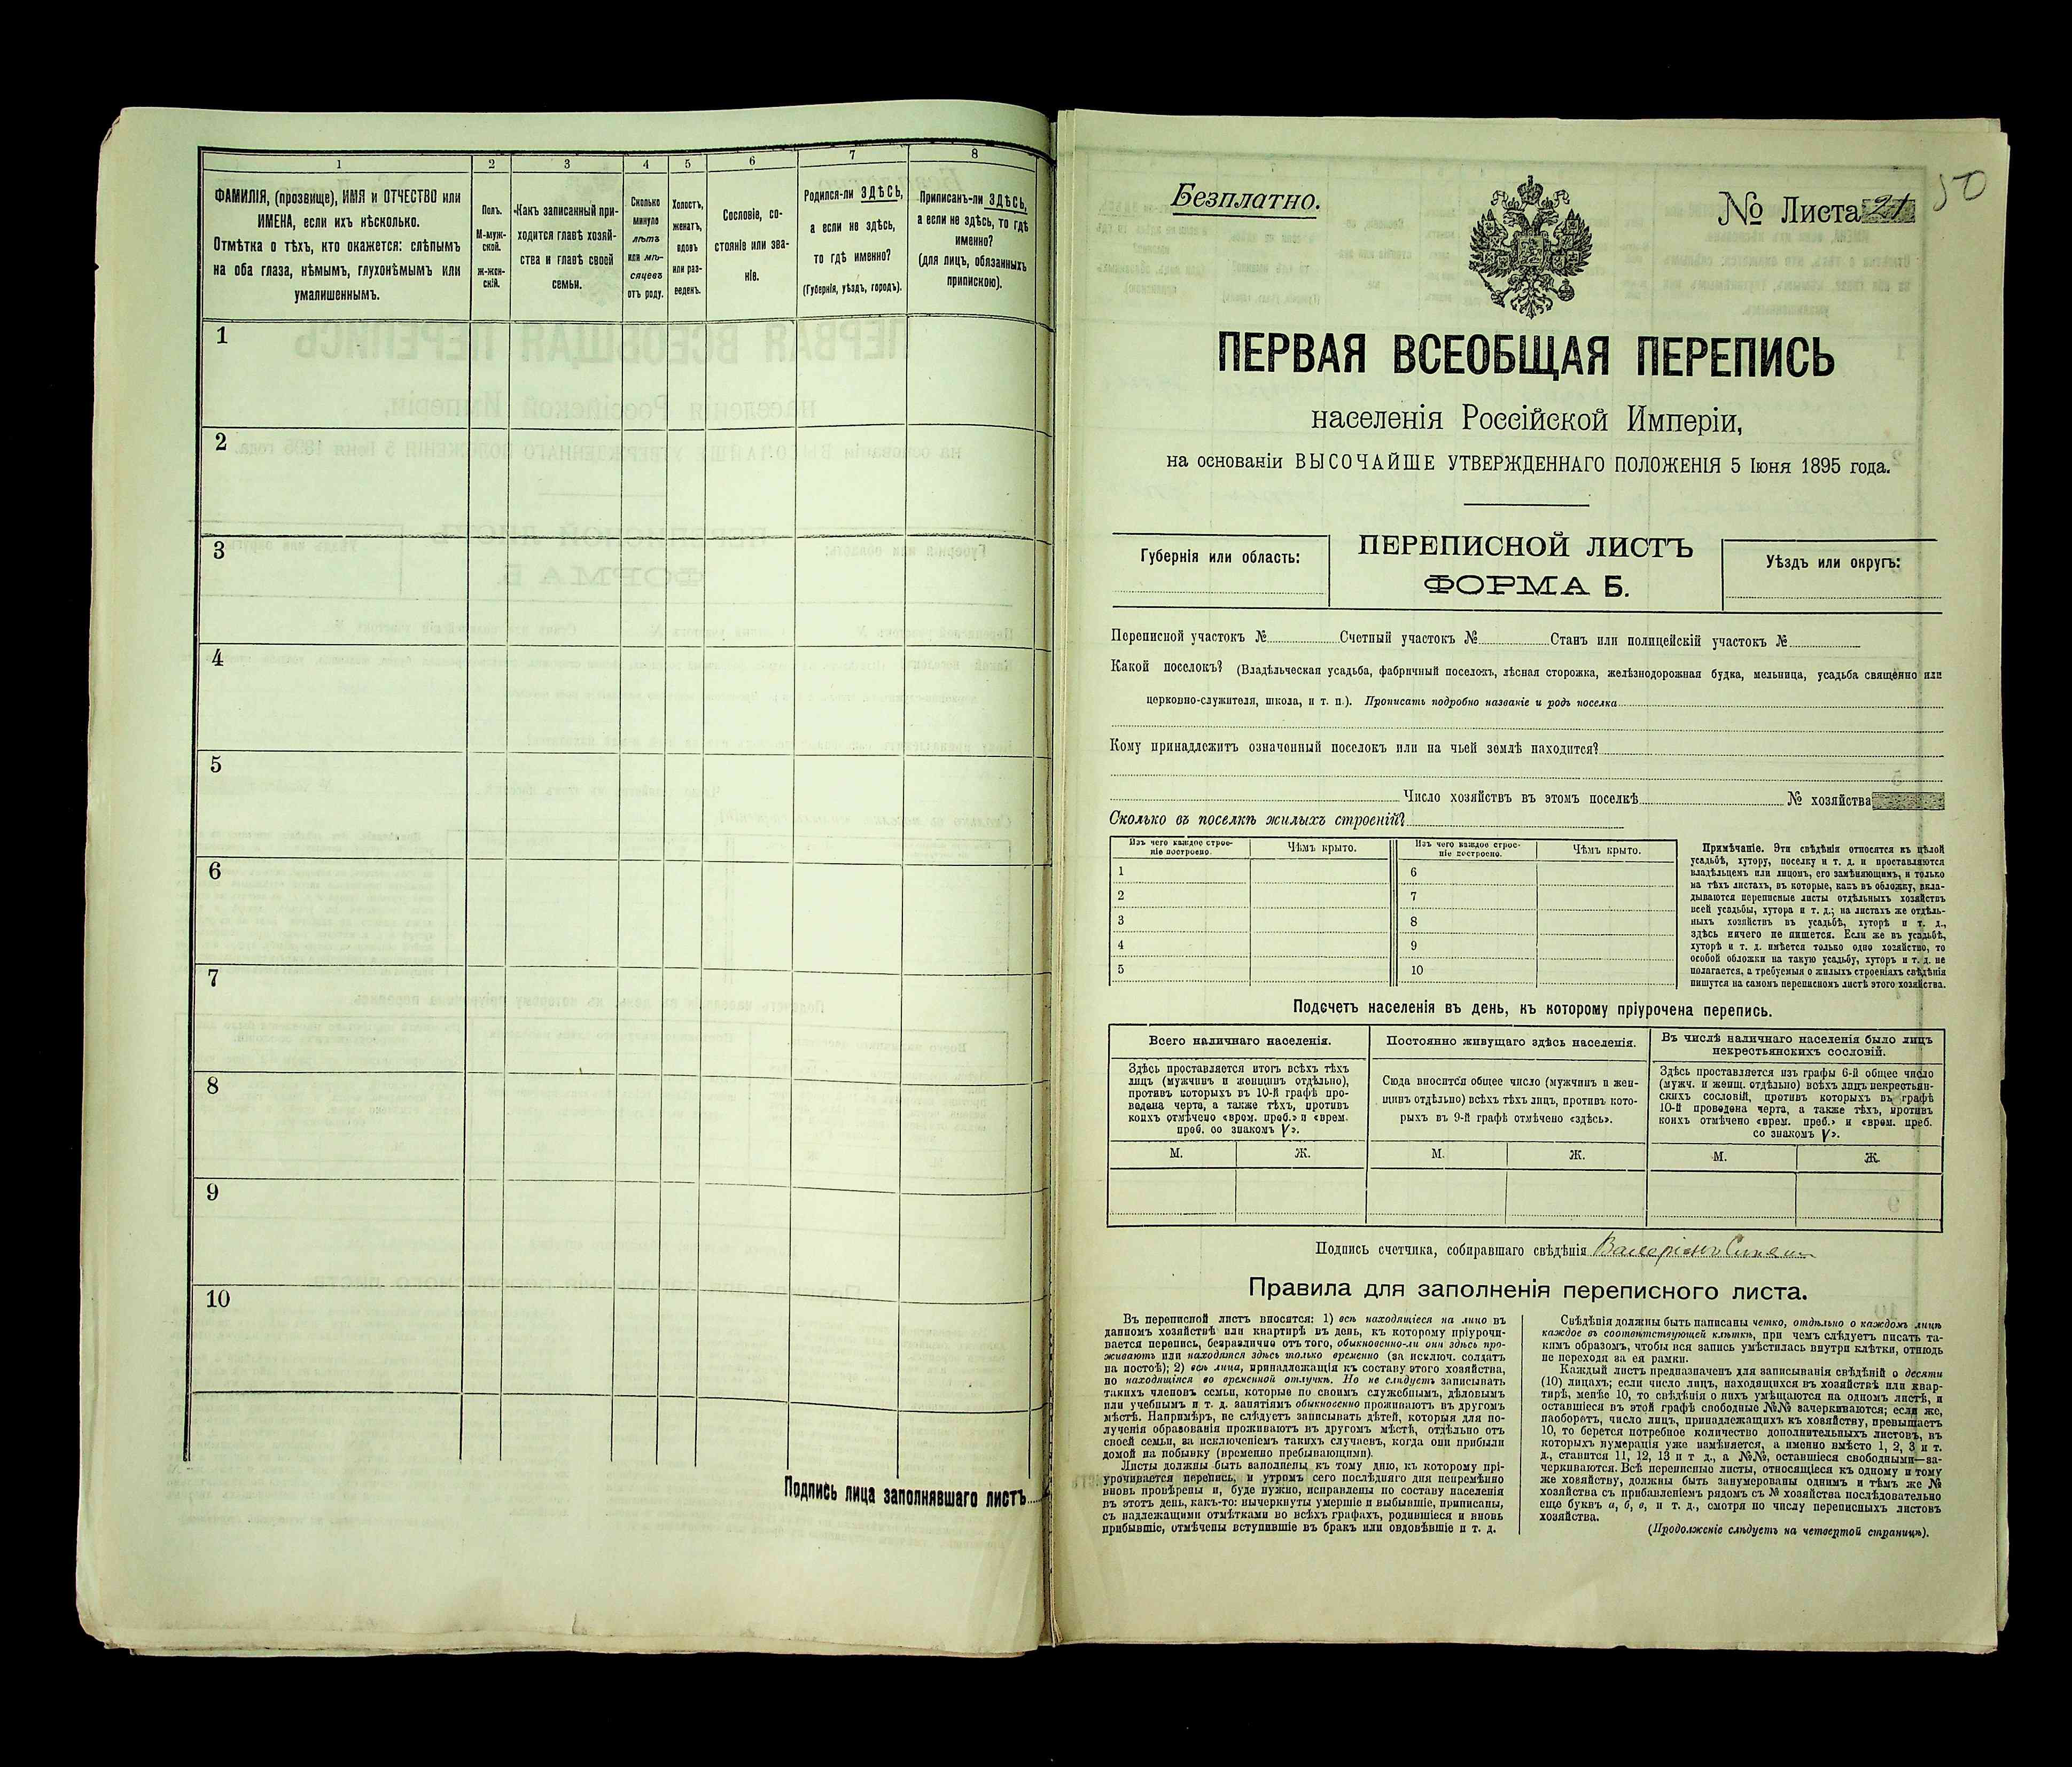 1 2 3 4 5 6 7 8
ФАМИЛІЯ, (прозвище), ИМЯ и ОТЧЕСТВО или
ИМЕНА, если ихъ нѣсколько.
Отмѣтка о тѣхъ, кто окажется: слѣпымъ
на оба глаза, нѣмымъ, глухонѣмымъ или
умалишеннымъ.
Полъ.
М-муж-
ской.
ж-жен-
скій.
Какъ записанный при-
ходится главѣ хозяй-
ства и главѣ своей
семьи.
Сколько
минуло
лѣтъ
или мѣ-
сяцевъ
отъ роду.
Холостъ,
женатъ,
вдовъ
или раз-
веденъ.
Сословіе, со-
стояніе или зва-
ніе.
Родился-ли ЗДѢСЬ,
а если не здѣсь,
то гдѣ именно?
(Губернія, уѣздъ, городъ).
Приписанъ-ли ЗДѢСЬ,
а если не здѣсь, то гдѣ
именно?
(для лицъ, обязанныхъ
припискою).
1
2
3
4
5
6
7
8
9
10
Подпись лица заполнявшаго листъ
50
Безплатно.
№ Листа 21
ПЕРВАЯ ВСЕОБЩАЯ ПЕРЕПИСЬ
населенія Россійской Имперіи,
на основаніи ВЫСОЧАЙШЕ УТВЕРЖДЕННАГО ПОЛОЖЕНІЯ 5 Іюня 1895 года.
Губернія или область:
ПЕРЕПИСНОЙ ЛИСТЪ
ФОРМА Б.
Уѣздъ или округъ:
Переписной участокъ № Счетный участокъ № Станъ или полицейскій участокъ №
Какой поселокъ? (Владѣльческая усадьба, фабричный поселокъ, лѣсная сторожка, желѣзнодорожная будка, мельница, усадьба священно или
церковно-служителя, школа, и т. п.). Прописать подробно названіе и родъ поселка
Кому принадлежитъ означенный поселокъ или на чьей землѣ находится?
Число хозяйствъ въ этомъ поселкѣ № хозяйства
Сколько въ поселкѣ жилыхъ строеній?
Изъ чего каждое строе-
ніе построено.
Чѣмъ крыто.
Изъ чего каждое строе-
ніе построено.
Чѣмъ крыто.
1 6
2 7
3 8
4 9
5 10
Примѣчаніе. Эти свѣдѣнія относятся къ цѣлой
усадьбѣ, хутору, поселку и т. д. и проставляются
владѣльцемъ или лицомъ, его замѣняющимъ, и только
на тѣхъ листахъ, въ которые, какъ въ обложку, вкла-
дываются переписные листы отдѣльныхъ хозяйствъ
всей усадьбы, хутора и т. д.; на листахъ же отдѣль-
ныхъ хозяйствъ въ усадьбѣ, хуторѣ и т. д.,
здѣсь ничего не пишется. Если же въ усадьбѣ,
хуторѣ и т. д. имѣется только одно хозяйство, то
особой обложки на такую усадьбу, хуторъ и т. д. не
полагается, а требуемыя о жилыхъ строеніяхъ свѣдѣнія
пишутся на самомъ переписномъ листѣ этого хозяйства.
Подсчетъ населенія въ день, къ которому пріурочена перепись.
Всего наличнаго населенія.
Здѣсь проставляется итогъ всѣхъ тѣхъ
лицъ (мужчинъ и женщинъ отдѣльно),
противъ которыхъ въ 10-й графѣ про-
ведена черта, а также тѣхъ, противъ
коихъ отмѣчено «врем. преб.» и «врем.
преб. со знакомъ V».
Постоянно живущаго здѣсь населенія.
Сюда вносится общее число (мужчинъ и жен-
щинъ отдѣльно) всѣхъ тѣхъ лицъ, противъ кото-
рыхъ въ 9-й графѣ отмѣчено «здѣсь».
Въ числѣ наличнаго населенія было лицъ
некрестьянскихъ сословій.
Здѣсь проставляется изъ графы 6-й общее число
(мужч. и женщ. отдѣльно) всѣхъ лицъ некрестьян-
скихъ сословій, противъ которыхъ въ графѣ
10-й проведена черта, а также тѣхъ, противъ
коихъ отмѣчено «врем. преб.» и «врем. преб.
со знакомъ V».
М. Ж. М. Ж. М. Ж.
Подпись счетчика, собиравшаго свѣдѣнія Валеріанъ
Правила для заполненія переписного листа.
Въ переписной листъ вносятся: 1) всѣ находящіеся на лицо въ
данномъ хозяйствѣ или квартирѣ въ день, къ которому пріурочи-
вается перепись, безразлично отъ того, обыкновенно-ли они здѣсь про-
живаютъ или находятся здѣсь только временно (за исключ. солдатъ
на постоѣ); 2) всѣ лица, принадлежащія къ составу этого хозяйства,
но находящіяся во временной отлучкѣ. Но не слѣдуетъ записывать
такихъ членовъ семьи, которые по своимъ служебнымъ, дѣловымъ
или учебнымъ и т. д. занятіямъ обыкновенно проживаютъ въ другомъ
мѣстѣ. Напримѣръ, не слѣдуетъ записывать дѣтей, которыя для по-
лученія образованія проживаютъ въ другомъ мѣстѣ, отдѣльно отъ
своей семьи, за исключеніемъ такихъ случаевъ, когда они прибыли
домой на побывку (временно пребывающими).
Листы должны быть заполнены къ тому дню, къ которому прі-
урочивается перепись, и утромъ сего послѣдняго дня непремѣнно
вновь провѣрены и, буде нужно, исправлены по составу населенія
въ этотъ день, какъ-то: вычеркнуты умершіе и выбывшіе, приписаны,
съ надлежащими отмѣтками во всѣхъ графахъ, родившіеся и вновь
прибывшіе, отмѣчены вступившіе въ бракъ или овдовѣвшіе и т. д.
Свѣдѣнія должны быть написаны четко, отдѣльно о каждомъ лицѣ
каждое въ соотвѣтствующей клѣткѣ, при чемъ слѣдуетъ писать та-
кимъ образомъ, чтобы вся запись умѣстилась внутри клѣтки, отнюдь
не переходя за ея рамки.
Каждый листъ предназначенъ для записыванія свѣдѣній о десяти
(10) лицахъ; если число лицъ, находящихся въ хозяйствѣ или квар-
тирѣ, менѣе 10, то свѣдѣнія о нихъ умѣщаются на одномъ листѣ, и
оставшіеся въ этой графѣ свободные №№ зачеркиваются; если же,
наоборотъ, число лицъ, принадлежащихъ къ хозяйству, превышаетъ
10, то берется потребное количество дополнительныхъ листовъ, въ
которыхъ нумерація уже измѣняется, а именно вмѣсто 1, 2, 3 и т.
д., ставится 11, 12, 13 и т д., а №№, оставшіеся свободными—за-
черкиваются. Всѣ переписные листы, относящіеся къ одному и тому
же хозяйству, должны быть занумерованы однимъ и тѣмъ же №
хозяйства съ прибавленіемъ рядомъ съ № хозяйства послѣдовательно
еще буквъ а, б, в, и т. д., смотря по числу переписныхъ листовъ
хозяйства.
(Продолженіе слѣдуетъ на четвертой страницѣ).